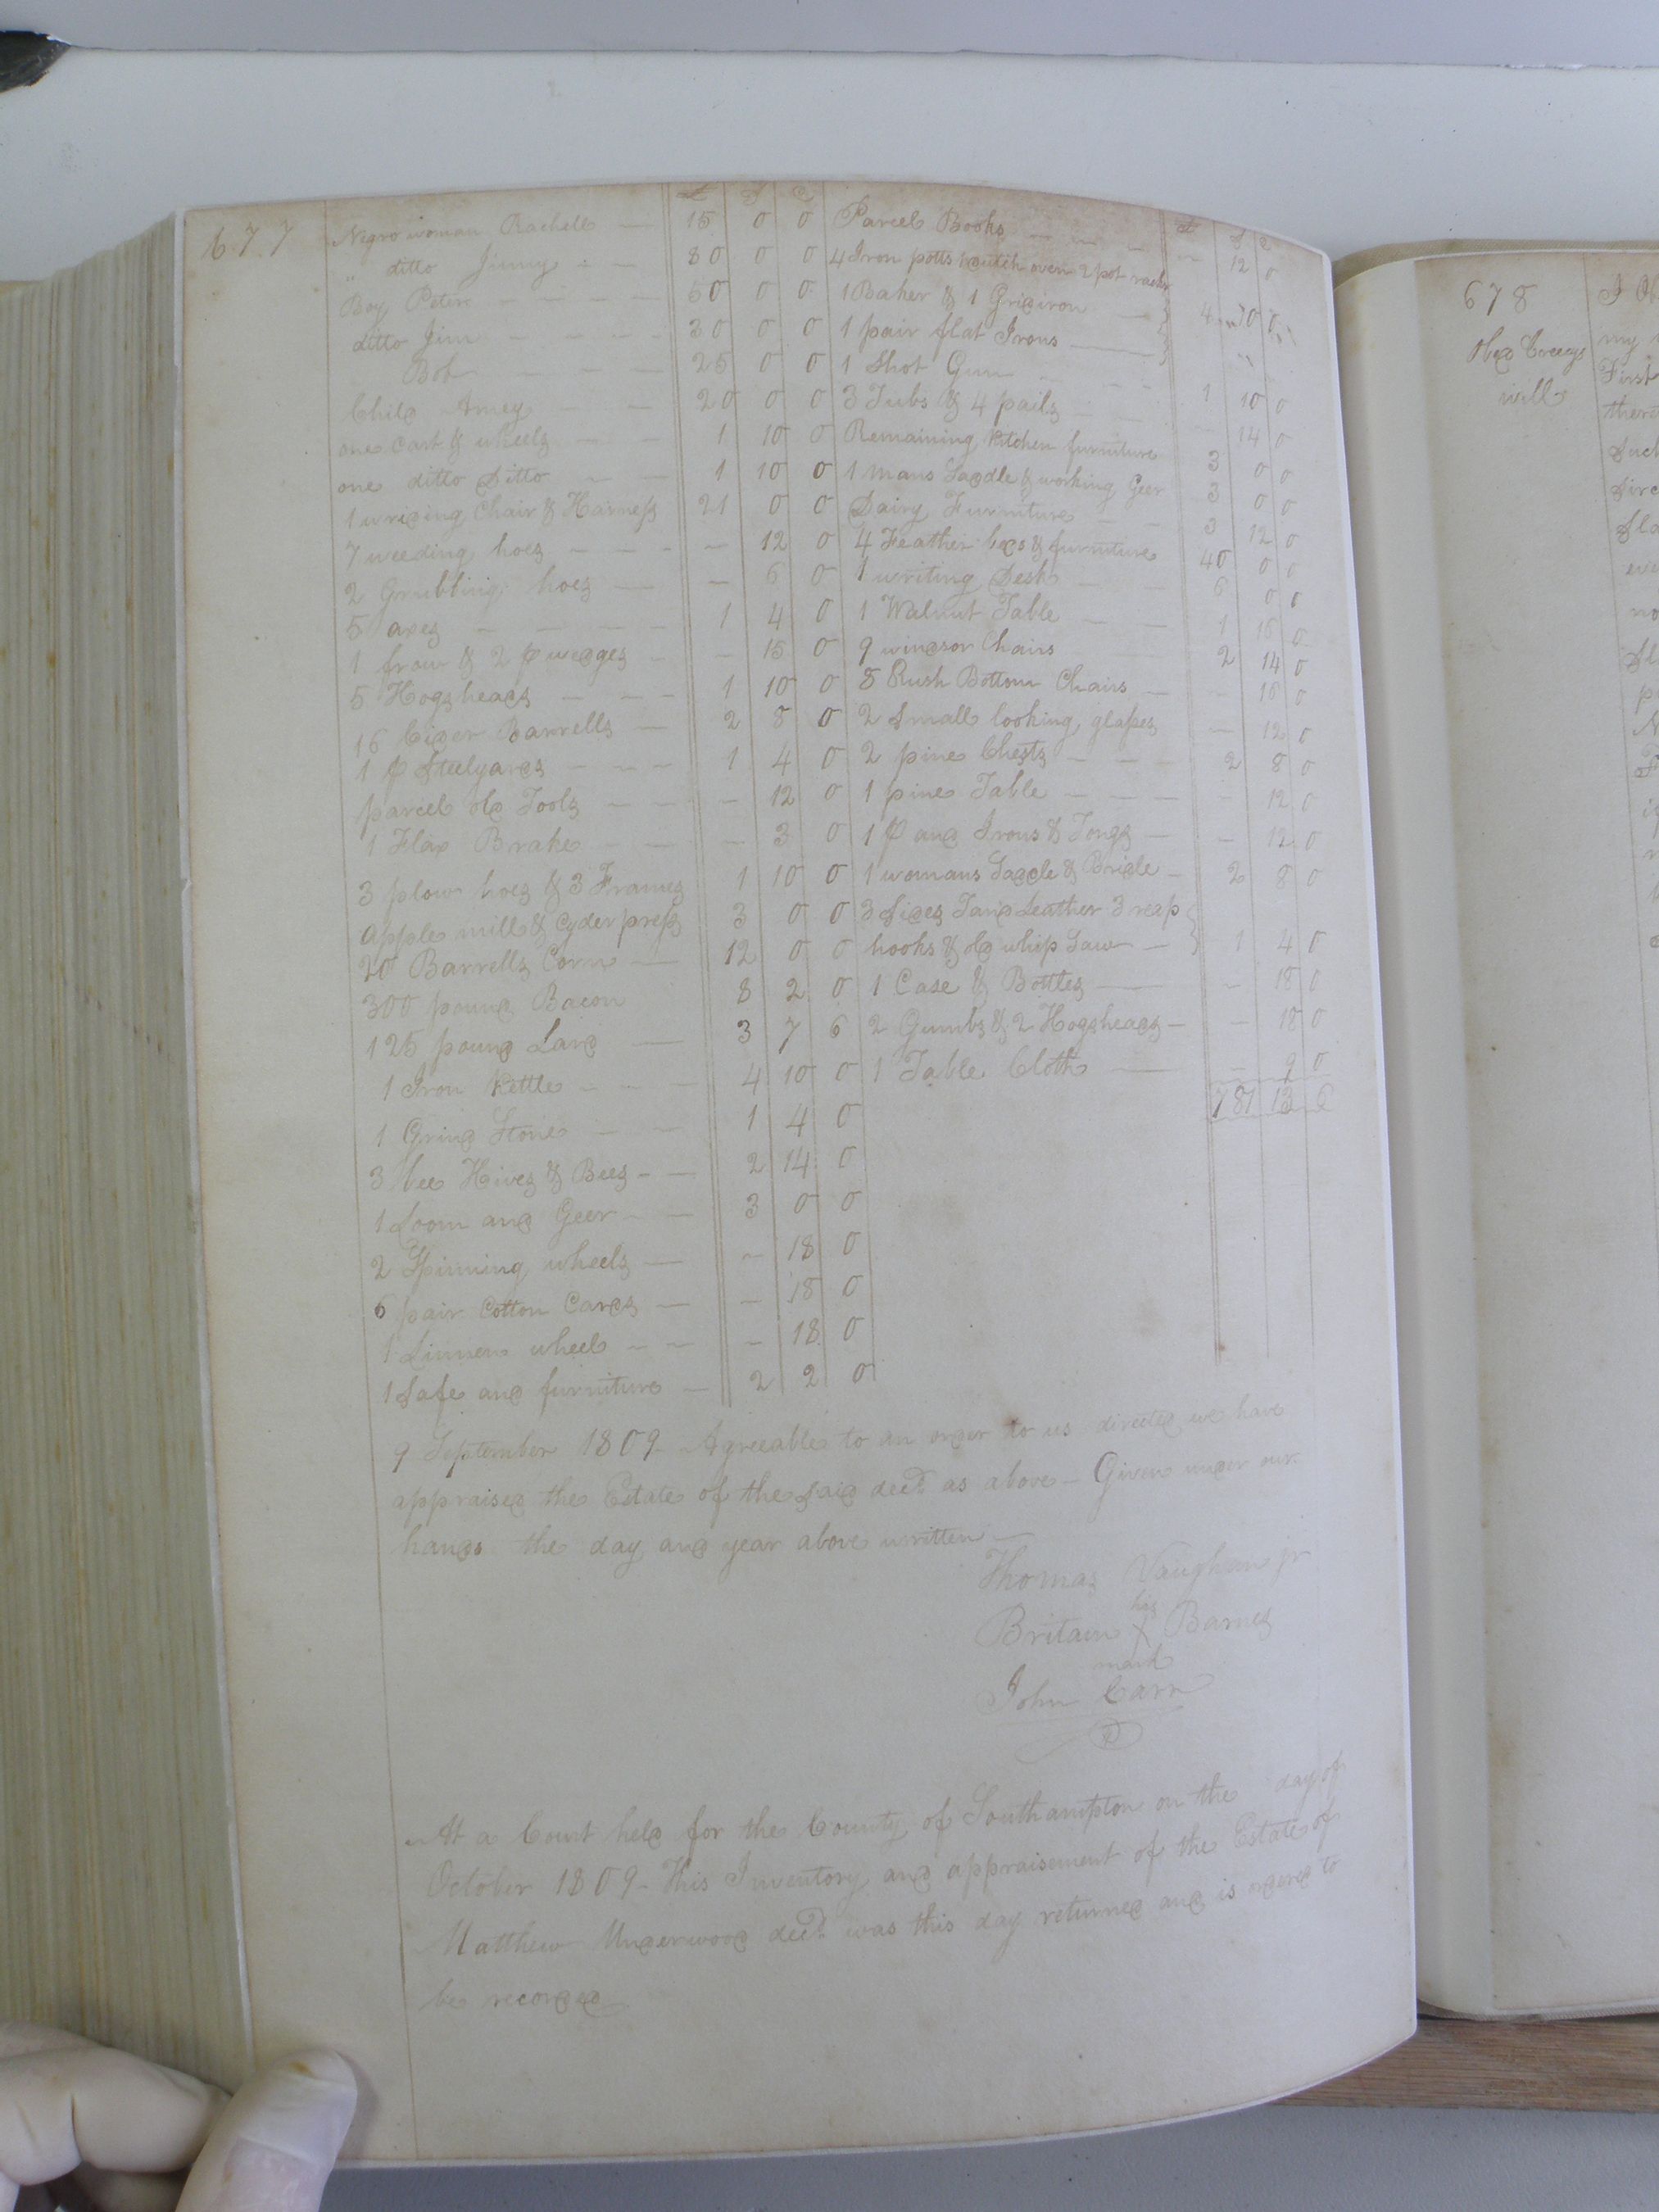 677
£ S D
Negro woman Rachell — 15 0 0
" ditto Jinny — 80 0 0
Boy Peter — 50 0 0
ditto Jim — 30 0 0
Bob — 25 0 0
Child Amey — 20 0 0
one Cart & wheels — 1 10 0
one ditto Ditto — 1 10 0
1 wriding Chair & Harness 21 0 0
7 weeding hoes — 12 0
2 Grubbing hoes — 6 0
5 axes — 1 4 0
1 frow & 2 p wedges — 15 0
5 Hogsheads — 1 10 0
16 Cider Barrells — 2 8 0
1 p Steelyards — 1 4 0
parcel old Tools — 12 0
1 Flax Brake — 3 0
3 plow hoes & 3 Frames 1 10 0
apple mill & Cyder press 3 0 0
20 Barrells Corn — 12 0 0
300 pound Bacon 8 2 0
125 pound Lard — 3 7 6
1 Iron Kettle — 4 10 0
1 Grind Stone — 1 4 0
3 bee Hives & Bees — 2 14 0
1 Loom and Geer — 3 0 0
2 Spinning wheels — 18 0
6 pair Cotton Cards — 18 0
1 Linnen wheel — 18 0
1 Safe and furniture — 2 2 0
£ S D
Parcel Books — 12 0
4 Iron potts 1 dutch oven 2 pot racks
1 Baker & 1 Gridiron — 4 10 0
1 pair flat Irons —
1 Shot Gun — 1 10 0
3 Tubs & 4 pails — 14 0
Remaining Kitchen furniture 3 0 0
1 mans Saddle & working Geer 3 0 0
Dairy Furniture — 3 12 0
4 Feather beds & furniture 40 0 0
1 writing Desk — 6 0 0
1 Walnut Table — 1 16 0
9 windsor Chairs 2 14 0
8 Rush Bottom Chairs — 16 0
2 Small looking glasses — 12 0
2 pine Chests — 2 8 0
1 pine Table — 12 0
1 p and Irons & Tongs — 12 0
1 womans Saddle & Bridle — 2 8 0
3 Sides Tand Leather 3 reap
hooks & old whip Saw — 1 4 0
1 Case & Bottles — 18 0
2 Gumbs & 2 Hogsheads — 18 0
1 Table Cloth — 9 0
781 13 6
9 September 1809 Agreeable to an order to us directed we have
appraised the Estate of the said decd as above — Given under our
hands the day and year above written —
Thomas Vaughan jr
his
Britain X Barnes
mark
John Carr
At a Court held for the County of Southampton on the day of
October 1809 — This Inventory and appraisement of the Estate of
Matthew Underwood decd was this day returned and is ordered to
be recorded
678
Obed Creeys
will
my
First